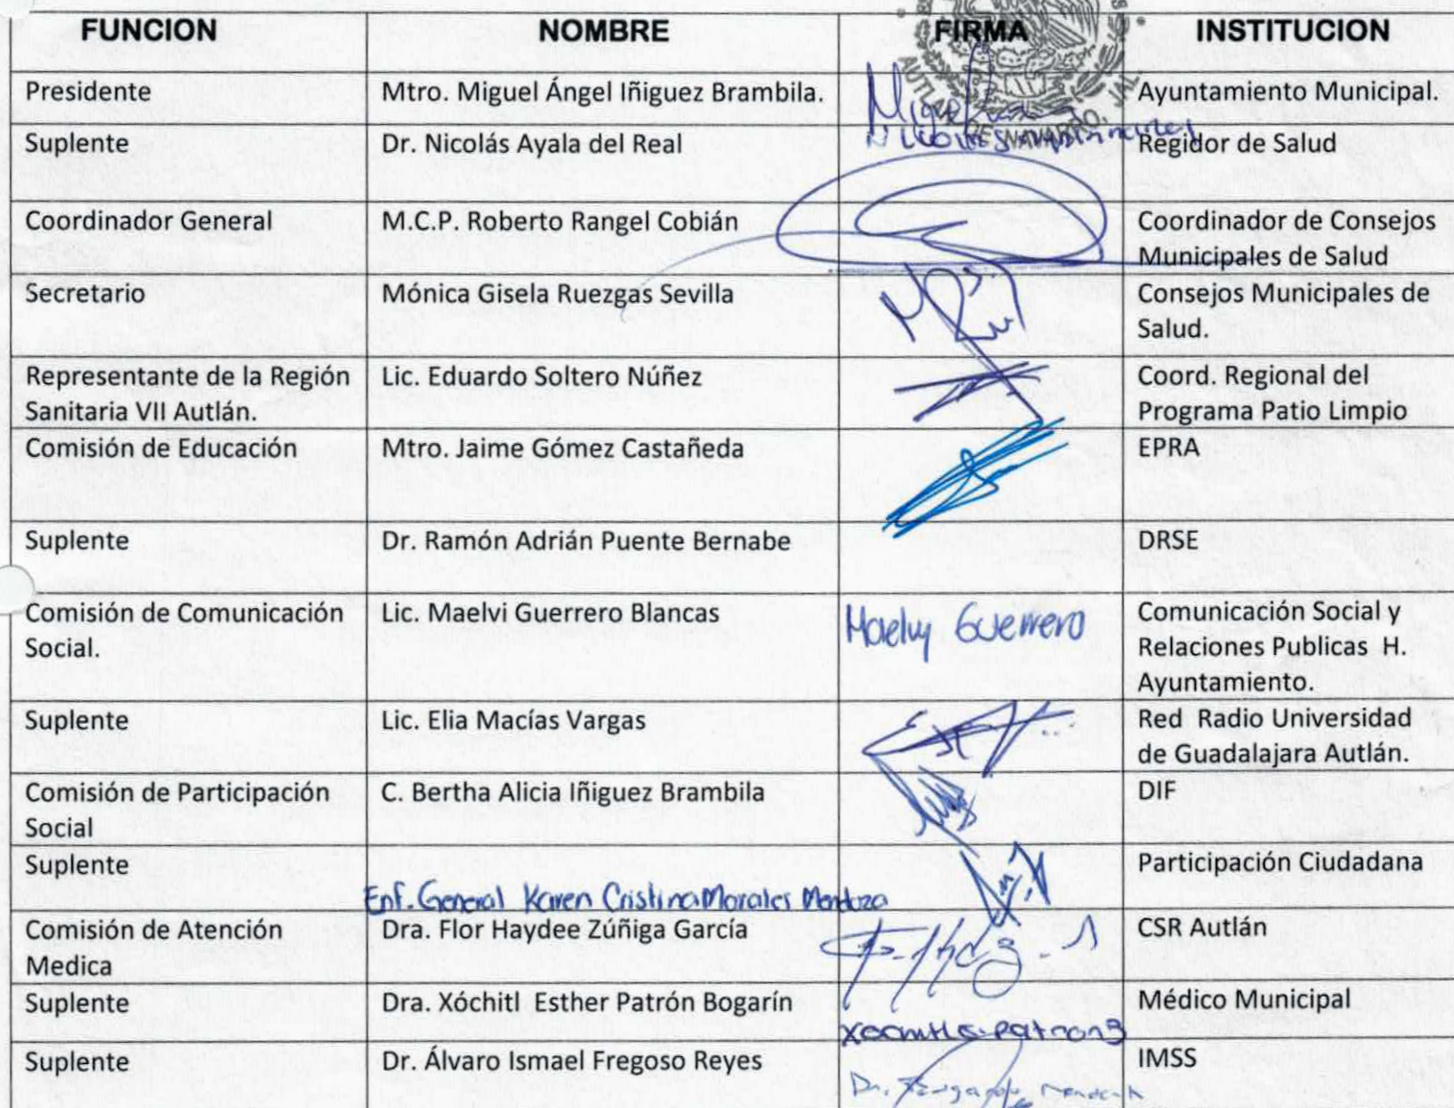 FUNCION NOMBRE FIRMA INSTITUCION
AUTLAN DE NAVARRO, JAL.
Presidente Mtro. Miguel Ángel Iñiguez Brambila. Miguel Ayuntamiento Municipal.
Suplente Dr. Nicolás Ayala del Real Regidor de Salud
Coordinador General M.C.P. Roberto Rangel Cobián Coordinador de Consejos
Municipales de Salud
Secretario Mónica Gisela Ruezgas Sevilla Consejos Municipales de
Salud.
Representante de la Región Lic. Eduardo Soltero Núñez Coord. Regional del
Sanitaria VII Autlán. Programa Patio Limpio
Comisión de Educación Mtro. Jaime Gómez Castañeda EPRA
Suplente Dr. Ramón Adrián Puente Bernabe DRSE
Comisión de Comunicación Lic. Maelvi Guerrero Blancas Maelvy Guerrero Comunicación Social y
Social. Relaciones Publicas H.
Ayuntamiento.
Suplente Lic. Elia Macías Vargas Red Radio Universidad
de Guadalajara Autlán.
Comisión de Participación C. Bertha Alicia Iñiguez Brambila DIF
Social
Suplente Participación Ciudadana
Enf. General Karen Cristina Morales Mendoza
Comisión de Atención Dra. Flor Haydee Zúñiga García CSR Autlán
Medica
Suplente Dra. Xóchitl Esther Patrón Bogarín Médico Municipal
Suplente Dr. Álvaro Ismael Fregoso Reyes IMSS
Dr.